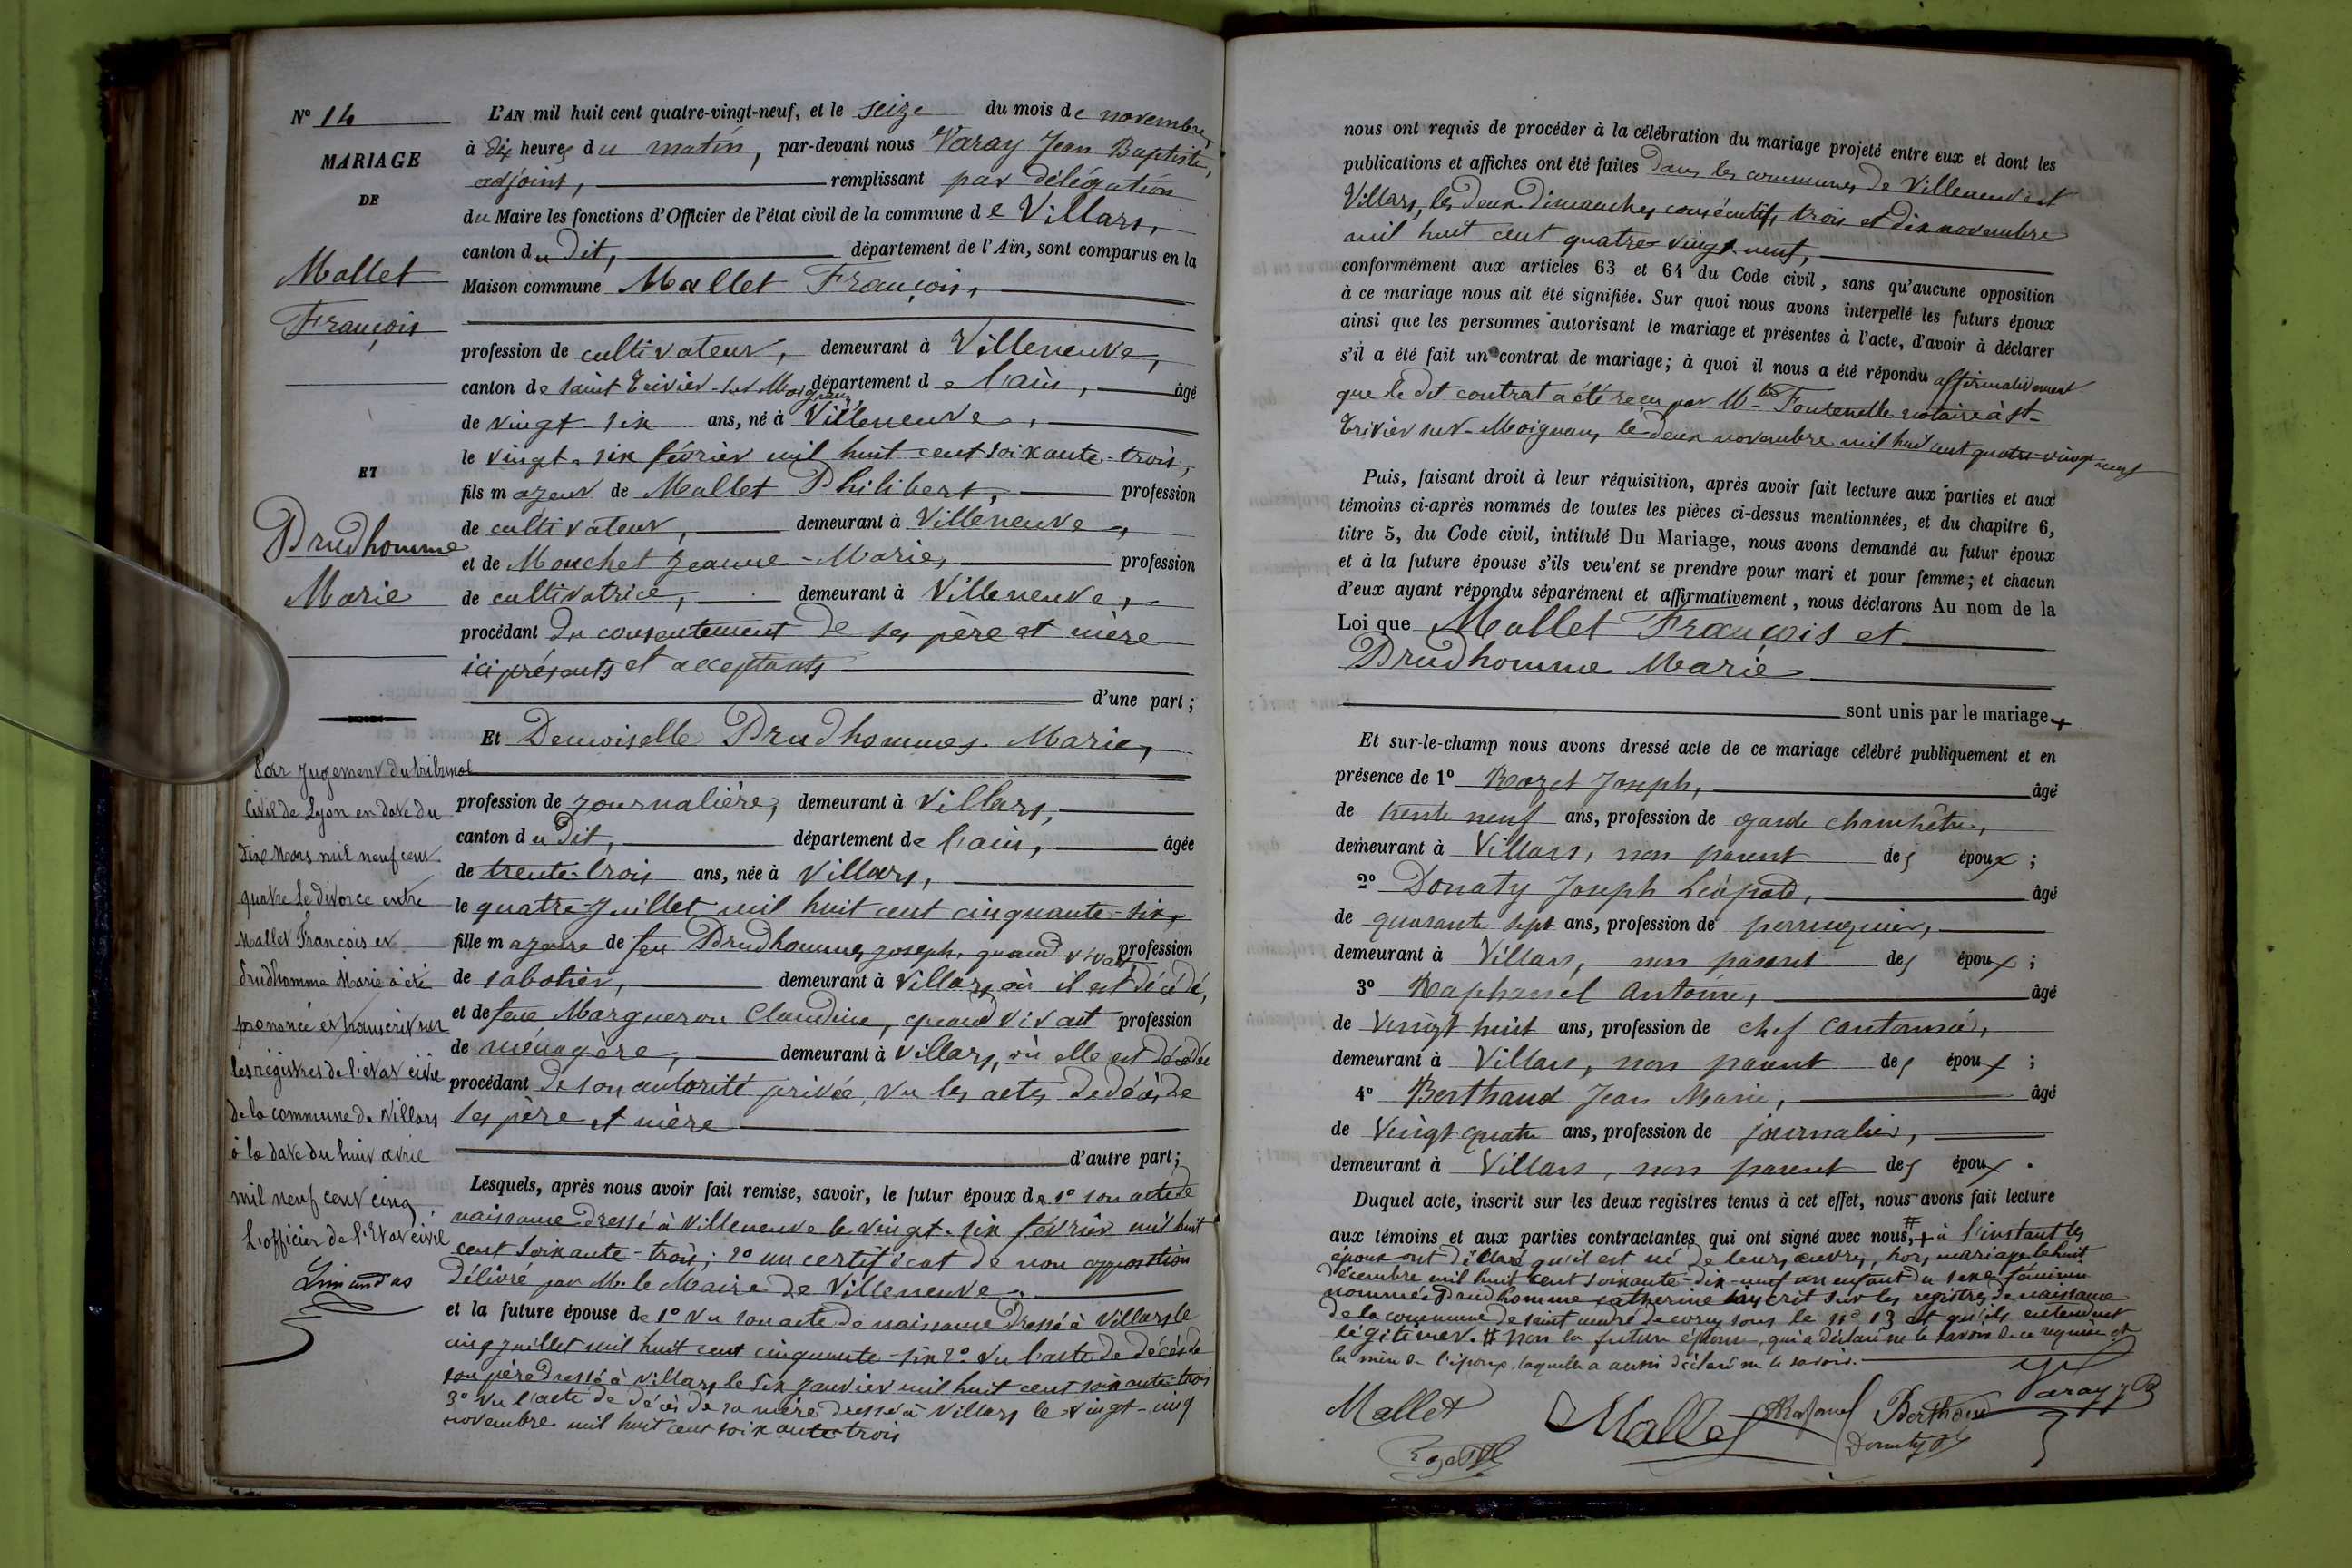 N° 14
MARIAGE
DE
Mallet
François
ET
Prudhomme
Marie
Par jugement du tribunal
Civil de Lyon en date du
dix Mars mil neuf cent
quatre le divorce entre
Mallet François et
Prudhomme Marie a été
prononcé et transcrit sur
les registres de l'état civil
de la commune de Villars
à la date du huit avril
mil neuf cent cinq
L'officier de l'Etat civil
L'AN mil huit cent quatre-vingt-neuf, et le seize du mois de novembre,
à dix heures du matin, par-devant nous Varay Jean Baptiste,
adjoint, remplissant par délégation
du Maire les fonctions d'Officier de l'état civil de la commune de Villars,
canton du dit, département de l'Ain, sont comparus en la
Maison commune Mallet François,
profession de cultivateur, demeurant à Villeneuve,
canton de Saint Trivier-sur-Moignans, département de l'ain, âgé
de vingt-six ans, né à Villeneuve,
le vingt-six février mil huit cent soixante-trois,
fils majeur de Mallet Philibert, profession
de cultivateur, demeurant à Villeneuve,
et de Mouchet Jeanne-Marie, profession
de cultivatrice, demeurant à Villeneuve,
procédant du consentement de ses père et mère
ici présents et acceptants
d'une part;
Et Demoiselle Prudhommes Marie,
profession de journalière, demeurant à Villars,
canton du dit, département de l'ain, âgée
de trente-trois ans, née à Villars,
le quatre Juillet mil huit cent cinquante-six,
fille majeure de feu Prudhomme, Joseph, quand vivait profession
de sabotier, demeurant à Villars, où il est décédé,
et de feue Margueron Claudine, quand vivait profession
de ménagère, demeurant à Villars, où elle est décédée
procédant de son autorité privée, vu les actes de décès de
ses père et mère
d'autre part;
Lesquels, après nous avoir fait remise, savoir, le futur époux de 1° son acte de
naissance dressé à Villeneuve le vingt-six février mil huit
cent soixante-trois; 2° un certificat de non opposition
délivré par M. le Maire de Villeneuve
et la future épouse de 1° Vu son acte de naissance dressé à Villars le
cinq juillet mil huit cent cinquante-six 2° Vu l'acte de décès de
son père dressé à Villars le six janvier mil huit cent soixante-trois
3° Vu l'acte de décès de sa mère dressé à Villars le vingt-cinq
novembre mil huit cent soixante-trois
nous ont requis de procéder à la célébration du mariage projeté entre eux et dont les
publications et affiches ont été faites dans les communes de Villeneuve et
Villars, les deux dimanches consécutifs trois et dix novembre
mil huit cent quatre-vingt-neuf,
conformément aux articles 63 et 64 du Code civil, sans qu'aucune opposition
à ce mariage nous ait été signifiée. Sur quoi nous avons interpellé les futurs époux
ainsi que les personnes autorisant le mariage et présentes à l'acte, d'avoir à déclarer
s'il a été fait un contrat de mariage; à quoi il nous a été répondu affirmativement
que le dit contrat a été reçu par Mtre Fontenelle notaire à St-
Trivier sur-Moignans, le deux novembre mil huit cent quatre-vingt neuf
Puis, faisant droit à leur réquisition, après avoir fait lecture aux parties et aux
témoins ci-après nommés de toutes les pièces ci-dessus mentionnées, et du chapitre 6,
titre 5, du Code civil, intitulé Du Mariage, nous avons demandé au futur époux
et à la future épouse s'ils veu'ent se prendre pour mari et pour femme; et chacun
d'eux ayant répondu séparément et affirmativement, nous déclarons Au nom de la
Loi que Mallet François et
Prudhomme Marie
sont unis par le mariage +
Et sur-le-champ nous avons dressé acte de ce mariage célébré publiquement et en
présence de 1° Rozet Joseph, âgé
de trente neuf ans, profession de garde champêtre,
demeurant à Villars, non parent des époux;
2° Donaty Joseph Léopold, âgé
de quarante sept ans, profession de perruquier,
demeurant à Villars, non parent des époux;
3° Raphanel Antoine, âgé
de Vingt huit ans, profession de chef cantonnier,
demeurant à Villars, non parent des époux;
4° Berthaud Jean Marie, âgé
de Vingt quatre ans, profession de journalier,
demeurant à Villars, non parent des époux.
Duquel acte, inscrit sur les deux registres tenus à cet effet, nous avons fait lecture
aux témoins et aux parties contractantes qui ont signé avec nous, # + à l'instant les
époux ont déclaré qu'il est né de leurs œuvres, hors mariage le huit
décembre mil huit cent soixante-dix-neuf un enfant du sexe féminin
nommée Prudhomme Catherine inscrit sur les registres de naissance
de la commune de Saint André de Corcy sous le n° 13 et qu'ils entendent
légitimer. # Non la future épouse, qui a déclaré ne le savoir de ce requise et
la mère de l'époux, laquelle a aussi déclaré ne le savoir.
Mallet Mallet Raphanel Berthaud Varay JB
Rozet Donaty JL